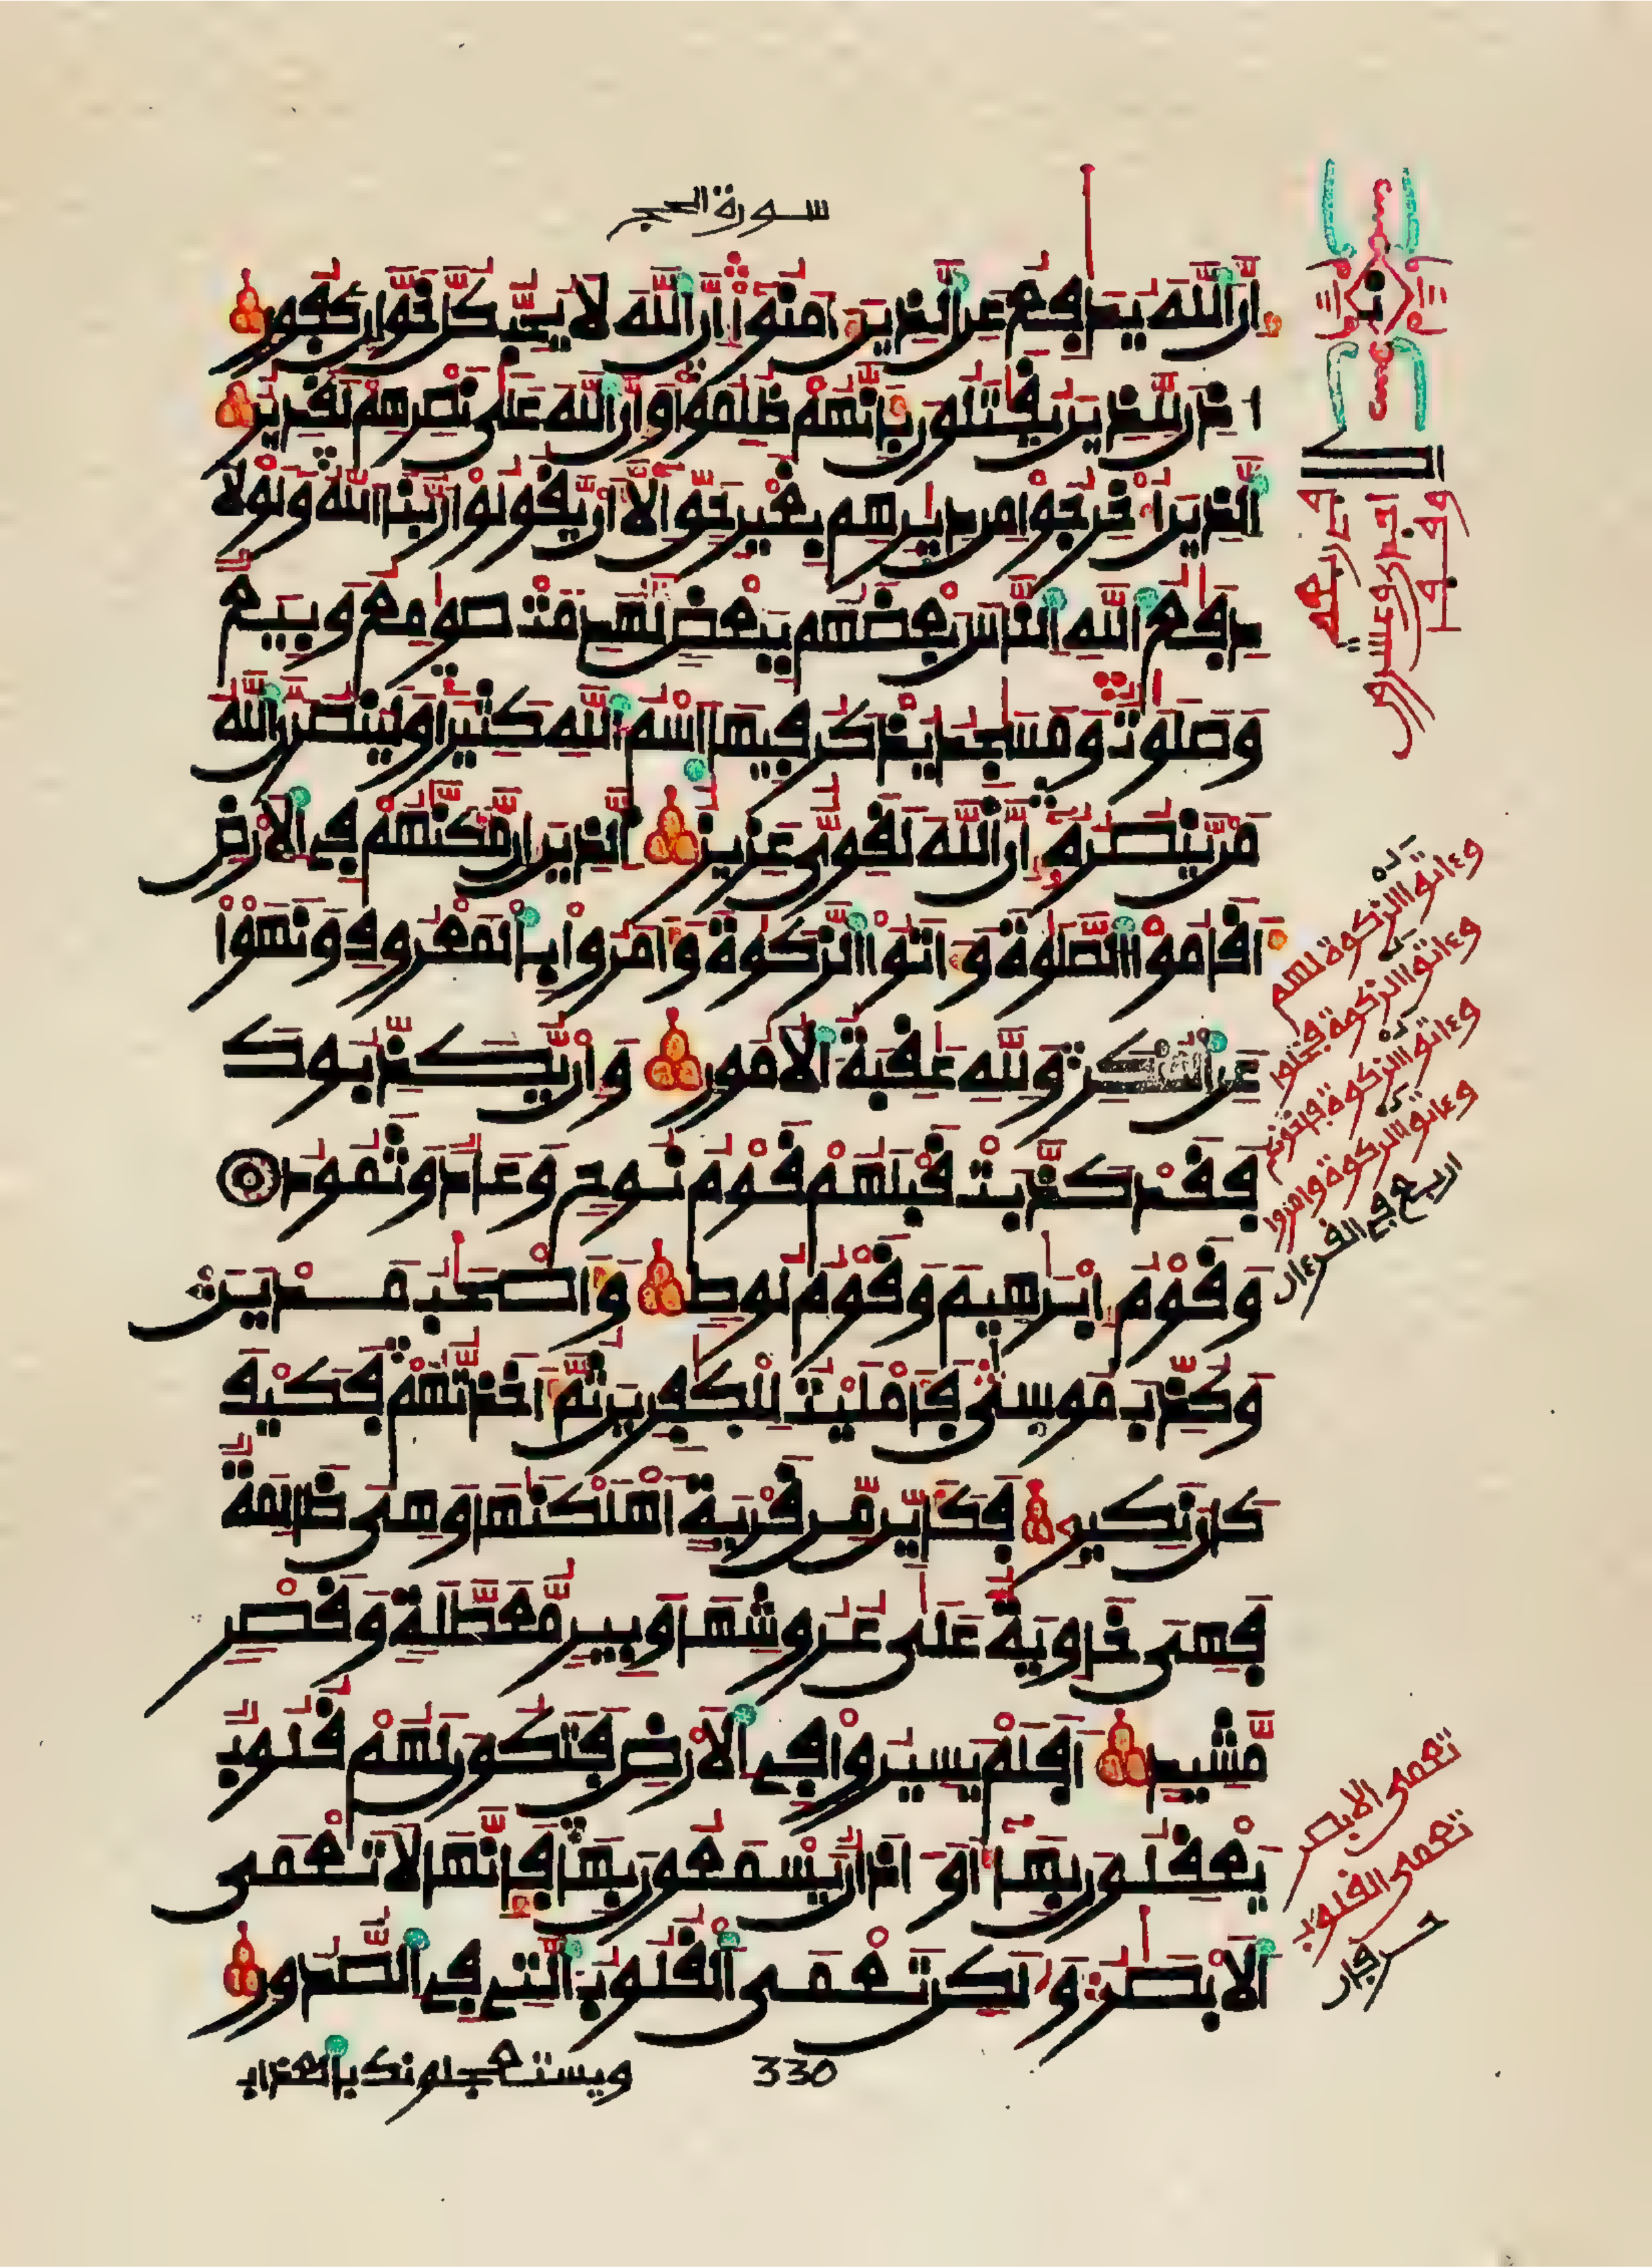 سورة الحج
ان الله يدفع عن الذين ءامنوا ان الله لا يحب كل خوان كفور
اذن للذين يقتلون بانهم ظلموا وان الله على نصرهم لقدير
الذين اخرجوا من ديرهم بغير حق الا ان يقولوا ربنا الله ولولا
دفع الله الناس بعضهم ببعض لهدمت صومع وبيع
وصلوت ومسجد يذكر فيها اسم الله كثيرا ولينصرن الله
من ينصره ان الله لقوى عزيز الذين ان مكنهم في الارض
اقاموا الصلوة وءاتوا الزكوة وامروا بالمعروف ونهوا
عن المنكر ولله عقبة الامور وان يكذبوك
فقد كذبت قبلهم قوم نوح وعاد وثمود
وقوم ابرهيم وقوم لوط واصحب مدين
وكذب موسى فامليت للكفرين ثم اخذتهم فكيف
كان نكير فكاين من قرية اهلكنها وهى ظالمة
فهى خاوية على عروشها وبير معطلة وقصر
مشيد افلم يسيروا في الارض فتكون لهم قلوب
يعقلون بها او اذان يسمعون بها فانها لا تعمى
الابصر ولكن تعمى القلوب التي في الصدور
ويستعجلونك بالعذاب
330
وءاتوا الزكوة لهم
وءاتوا الزكوة فخلوا
وءاتوا الزكوة فاخونكم
وءاتوا الزكوة وامروا
اربع في القرءان
تعمى الابصر
تعمى القلوب
حرفان